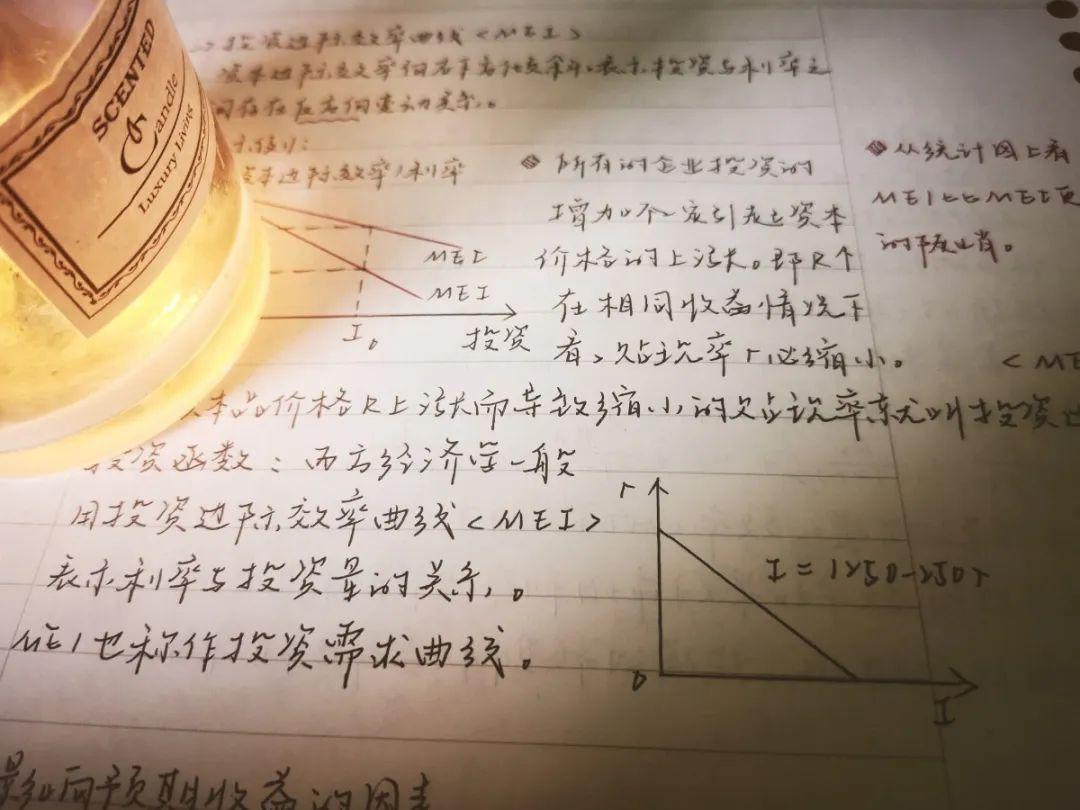 投资边际效率曲线<MEI>
资本边际效率
表示投资与利率之
间存在反方向变动关系。
资本边际效率/利率
MEC
MEI
I₀
投资
所有的企业投资的
增加,会引起资本
价格的上涨。即R↑
在相同收益情况下
看,贴现率r必缩小。
从统计图上看
MEI比MEC更
的陡峭。
<ME
本品价格R上涨而导致缩小的贴现率 投资
投资函数:西方经济学一般
用投资边际效率曲线<MEI>
表示利率与投资量的关系。
MEI也称作投资需求曲线。
r
I = 1250-250r
0
I
影响预期收益的因素
SCENTED
Candle
Luxury Living